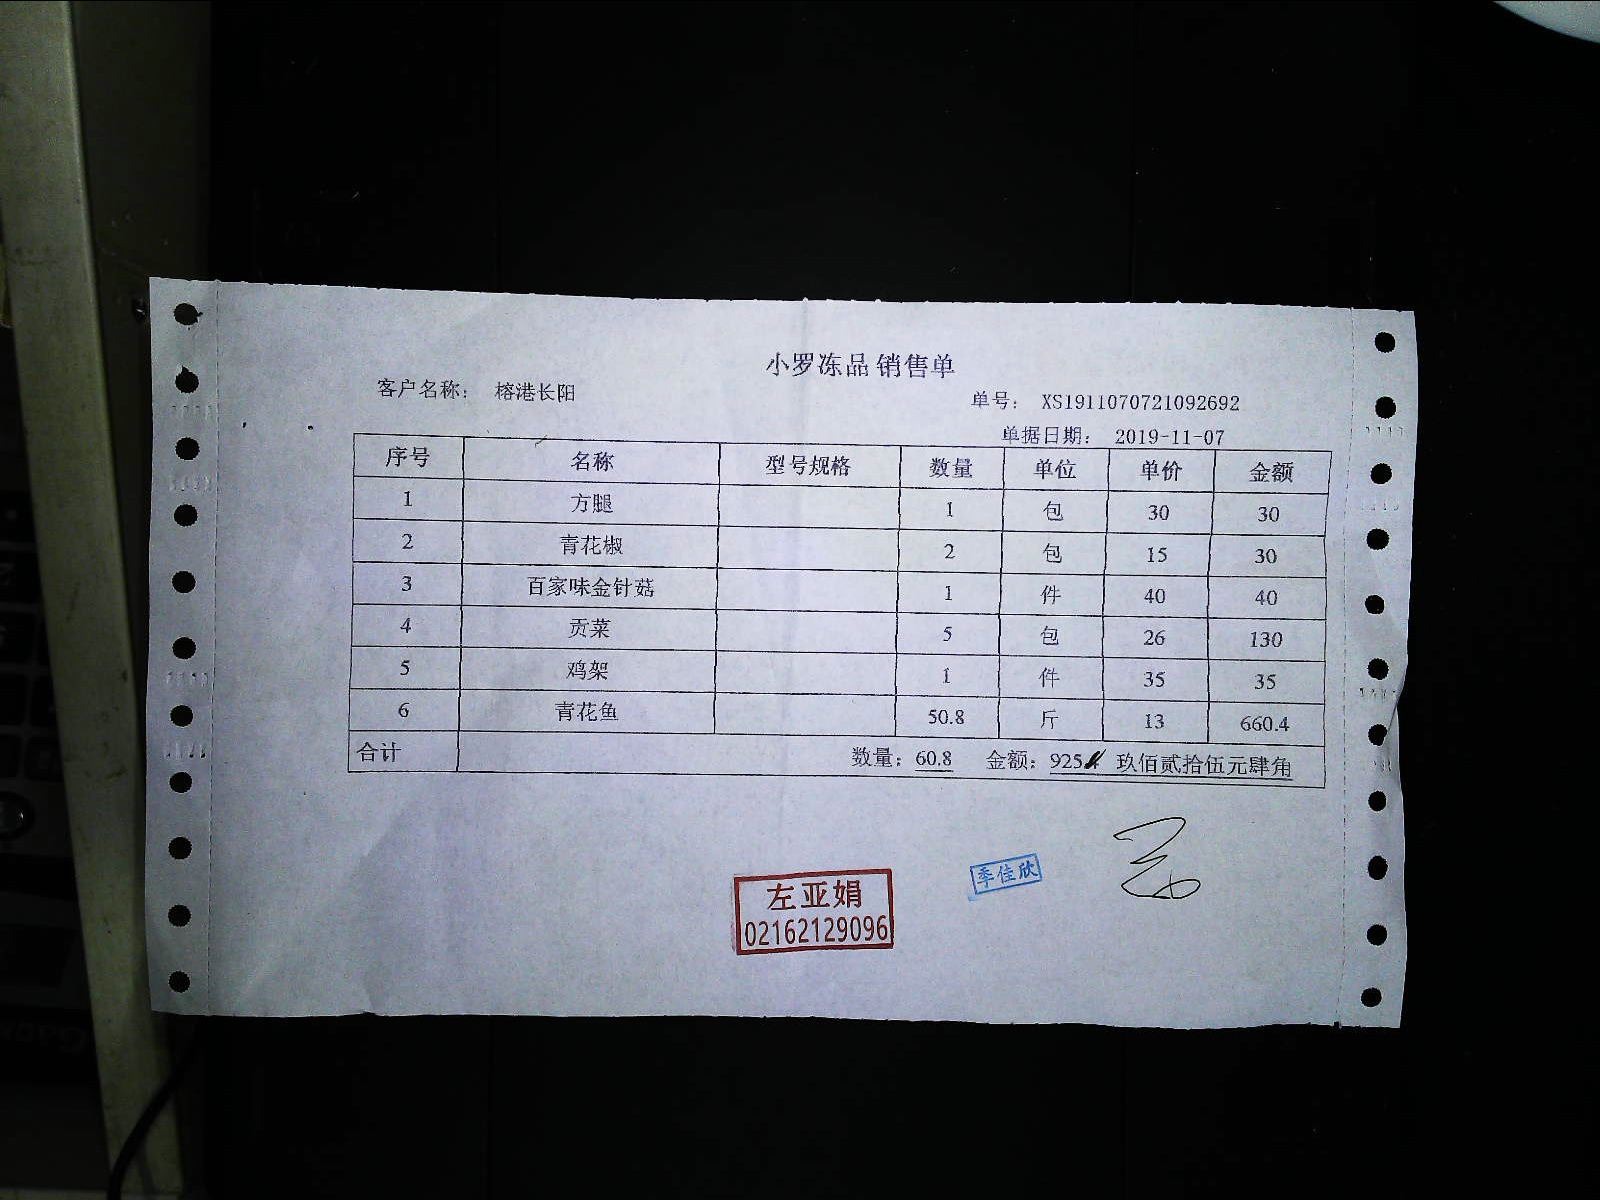 小罗冻品 销售单
客户名称： 榕港长阳
单号： XS1911070721092692
单据日期： 2019-11-07
序号 名称 型号规格 数量 单位 单价 金额
1 方腿 1 包 30 30
2 青花椒 2 包 15 30
3 百家味金针菇 1 件 40 40
4 贡菜 5 包 26 130
5 鸡架 1 件 35 35
6 青花鱼 50.8 斤 13 660.4
合计 数量：60.8 金额：925 玖佰贰拾伍元肆角
季佳欣
左亚娟
02162129096